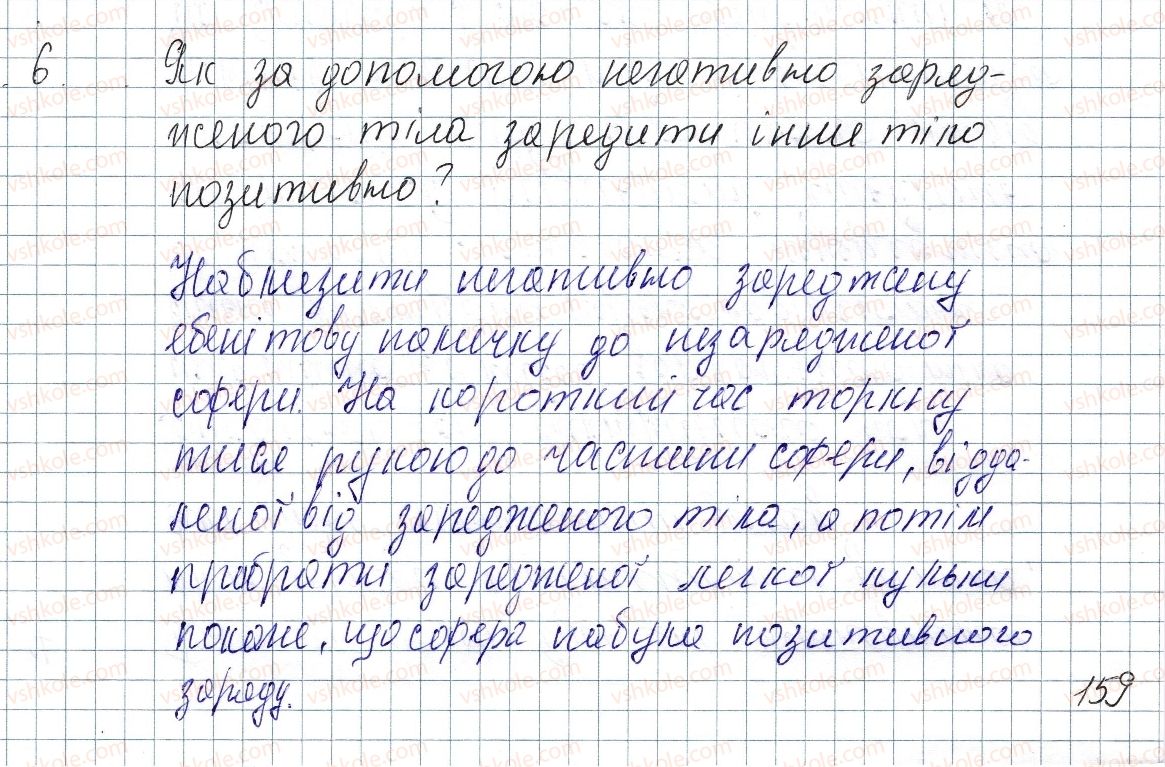 6. Як за допомогою негативно заряд-
женого тіла зарядити інше тіло
позитивно?
Наблизити негативно заряджену
ебенітову паличку до незарядженої
сфери. На короткий час торкну
тися рукою до частини сфери, відда-
леної від зарядженого тіла, а потім
прибрати зарядженої легкої кульки
покаже, що сфера набула позитивного
заряду.
159